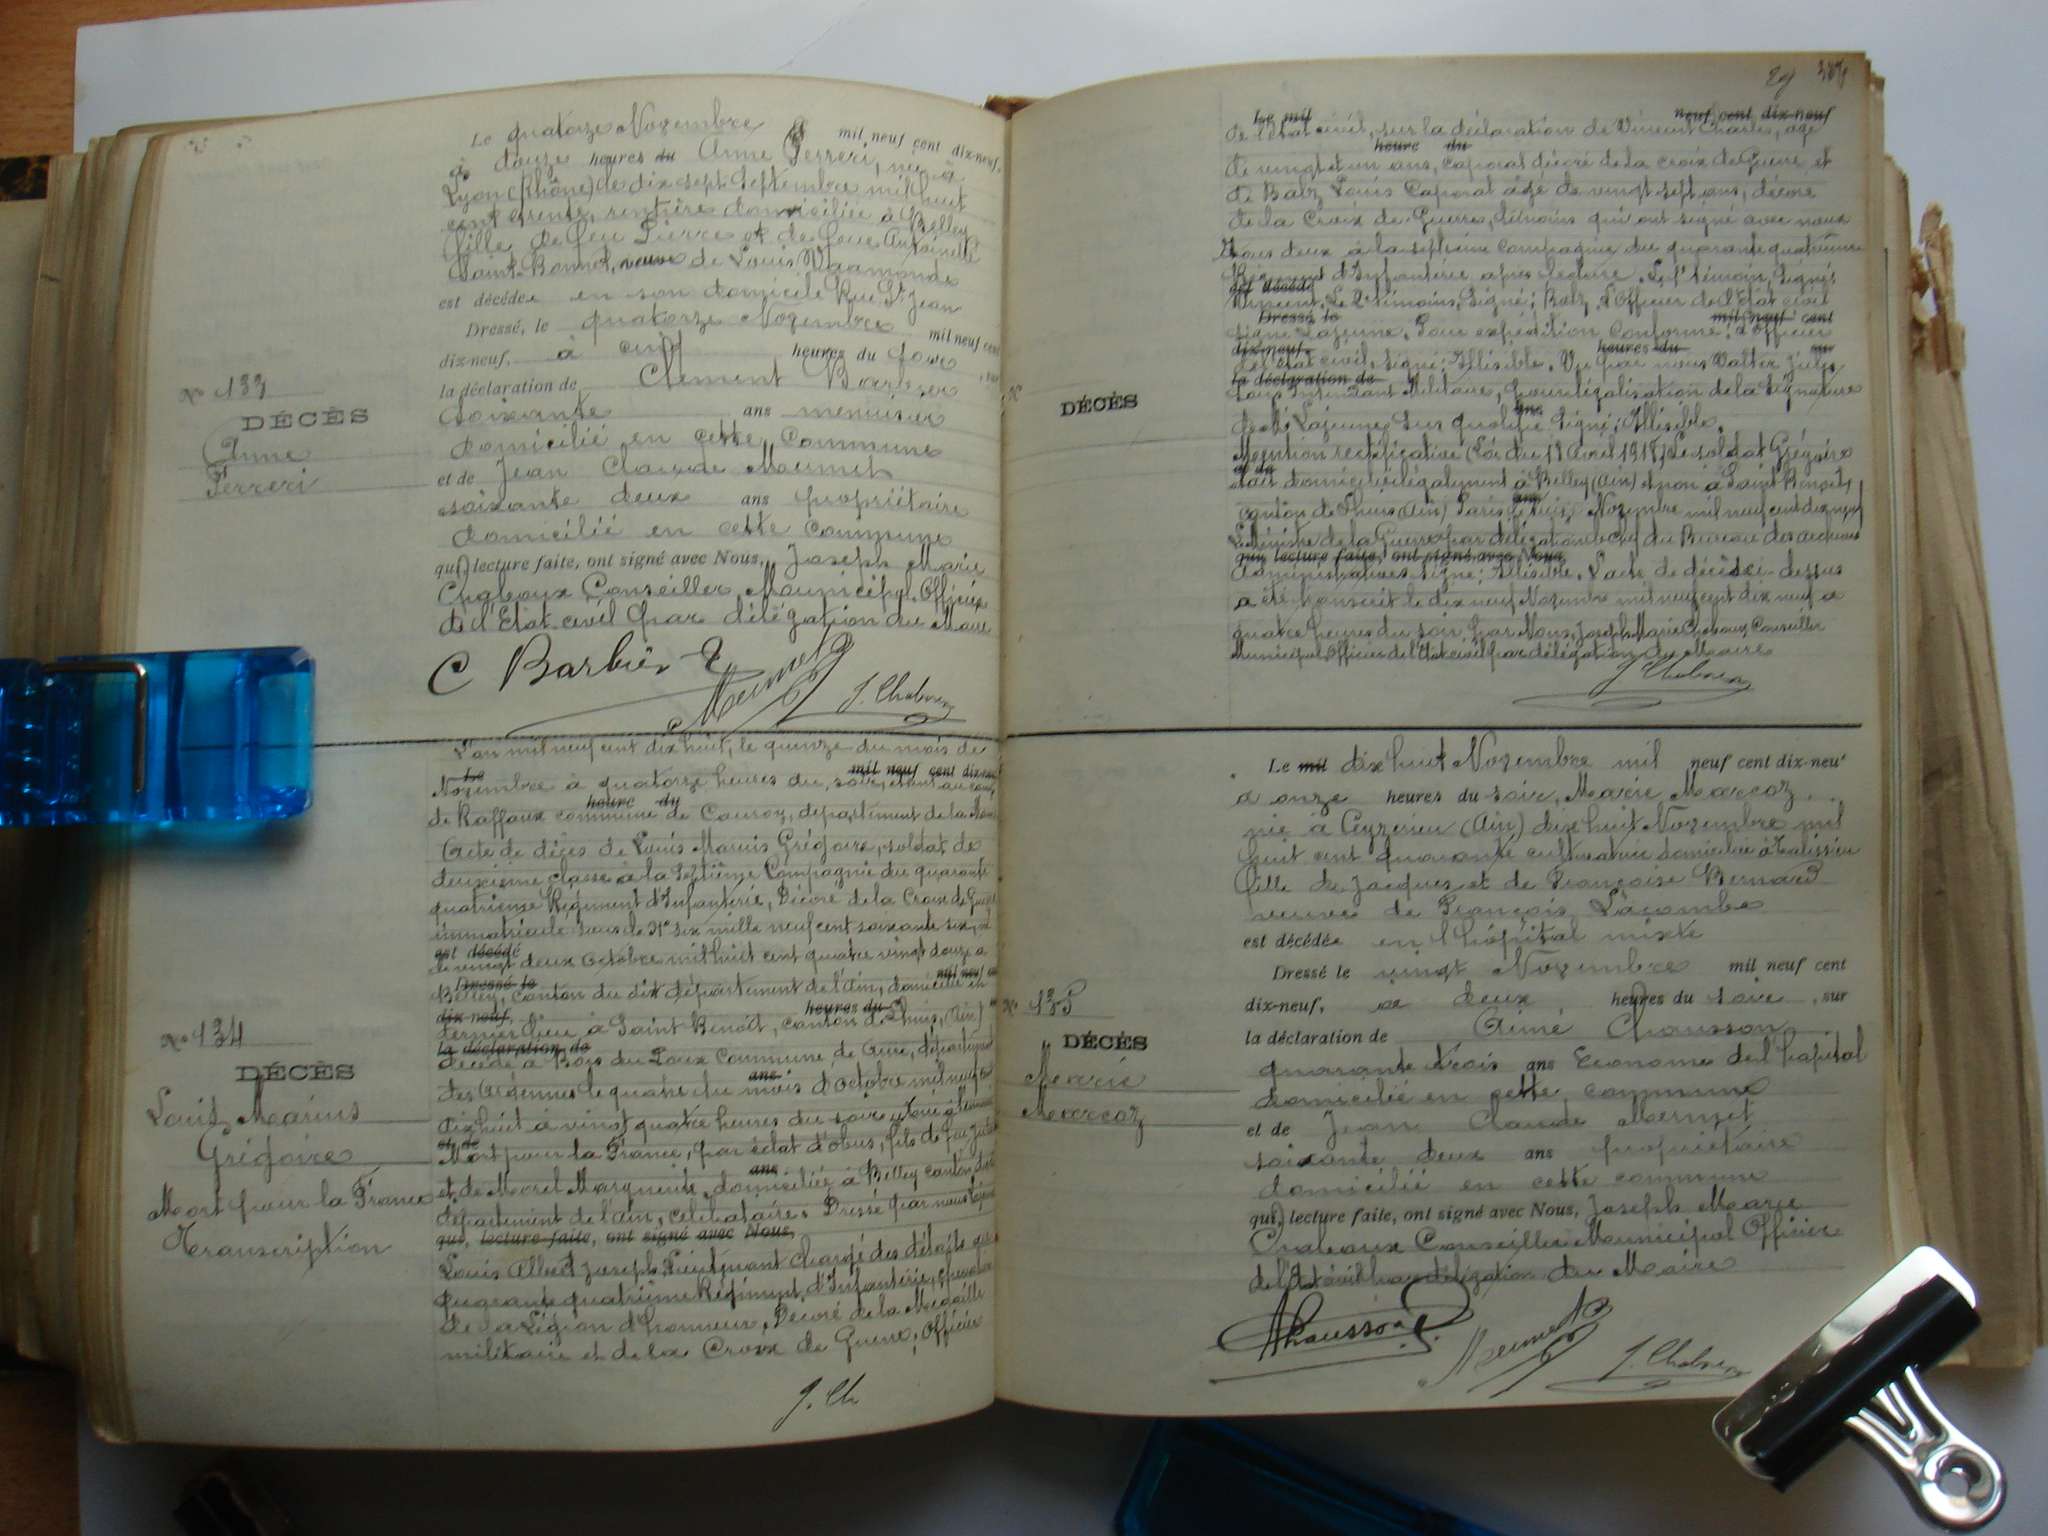 Le quatorze Novembre mil neuf cent dix-neuf,
à douze heures du Anne Ferreri, née à
Lyon (Rhône) le dix sept Septembre mil huit
cent trente, rentière domiciliée à Belley
fille de feu Pierre et de feue Antoinette
Saint-Bonnet, veuve de Louis
est décédée en son domicile Rue St Jean
Dressé, le quatorze Novembre mil neuf cent
dix-neuf, à cinq heures du soir, sur
la déclaration de Clément Barbier
soixante ans menuisier
domicilié en cette commune
et de Jean Claude Mermet
soixante deux ans propriétaire
domicilié en cette commune
qui, lecture faite, ont signé avec Nous, Joseph Marie
Chaboux Conseiller Municipal, Officier
de l'Etat-civil par délégation du Maire
C Barbier Mermet J. Chaboux
No 133
DÉCÈS
Anne
Ferreri
L'an mil neuf cent dix huit, le quinze du mois de
Le mil neuf cent dix-neuf
Novembre à quatorze heures du soir, étant au camp
heure du
de Raffaux commune de Cauroy, département de la Marne
Acte de décès de Louis Marius Grégoire, soldat de
deuxième classe à la septième Compagnie du quarante
quatrième Régiment d'Infanterie, Décoré de la Croix de Guerre
immatriculé sous le No six mille neuf cent soixante six, né
est décédé
le vingt deux Octobre mil huit cent quatre vingt douze à
Dressé le mil neuf cent
Belley, canton du dit département de l'Ain, domicilié en
dix-neuf, heures du
dernier lieu à Saint Benoît, canton de Lhuis, (Ain)
la déclaration de
décédé à Bois du Loux commune de département
ans
des Ardennes le quatre du mois d'Octobre mil neuf cent
dix huit à vingt quatre heures du soir
et de
Mort pour la France, par éclat d'obus, fils de feu
ans
et de Morel Marguerite, domiciliée à Belley canton dudit
département de l'Ain, célibataire. Dressé par nous Lajeune
qui, lecture faite, ont signé avec Nous,
Louis Albert Joseph Lieutenant chargé des détails au
quarante quatrième Régiment d'Infanterie, chevalier
de la Légion d'honneur, Décoré de la Médaille
militaire et de la Croix de Guerre, Officier
J. Ch
No 134
DÉCÈS
Louis Marius
Grégoire
Mort pour la France
Transcription
29
Le mil neuf cent dix-neuf
de l'état civil, sur la déclaration de Vincent Charles, âgé
heure du
de vingt et un ans, caporal décoré de la croix de Guerre et
de Balz Louis Caporal âgé de vingt sept ans, décoré
de la Croix de Guerre, témoins qui ont signé avec nous
Tous deux à la septième Compagnie du quarante quatrième
Régiment d'Infanterie après lecture. Le 1er témoin, Signé:
est décédé
Vincent, Le 2e témoin, Signé: Balz, L'Officier de l'Etat civil
Dressé le mil neuf cent
signé Lajeune. Pour expédition conforme: L'Officier
dix-neuf, heures du sur
de l'état civil, signé: Illisible. Vu par nous Walter Jules
la déclaration de
Sous Intendant Militaire, pour légalisation de la signature
ans
de Mr Lajeune sus qualifié Signé: Illisible.
Mention rectificative (Loi du 18 Avril 1918) Le soldat Grégoire
et de
était domicilié légalement à Belley (Ain) et non à Saint Benoît,
ans
canton de Lhuis (Ain) Paris le Novembre mil neuf cent dix neuf
Le Ministre de la Guerre par délégation le chef du Bureau des archives
qui, lecture faite, ont signé avec Nous,
Administratives signé: Illisible. L'acte de décès ci-dessus
a été transcrit le dix neuf Novembre mil neuf cent dix neuf à
quatre heures du soir, par Nous, Joseph Marie Chaboux, Conseiller
Municipal, Officier de l'état civil par délégation du Maire
J. Chaboux
No
DÉCÈS
Le mil dix huit Novembre mil neuf cent dix-neuf
à onze heures du soir, Marie Marcoz
née à Ceyzerieu (Ain) dix huit Novembre mil
huit cent quarante cultivatrice domiciliée à Talissieu
fille de Jacques et de Françoise Bernard
veuve de François Lacombe
est décédée en l'hôpital mixte
Dressé le vingt Novembre mil neuf cent
dix-neuf, à deux heures du soir, sur
la déclaration de Aimé Chausson
quarante trois ans Econome de l'hôpital
domicilié en cette commune
et de Jean Claude Mermet
soixante deux ans propriétaire
domicilié en cette commune
qui, lecture faite, ont signé avec Nous, Joseph Marie
Chaboux Conseiller Municipal Officier
de l'Etat-civil par délégation du Maire
AChausson Mermet J. Chaboux
No 135
DÉCÈS
Marie
Marcoz